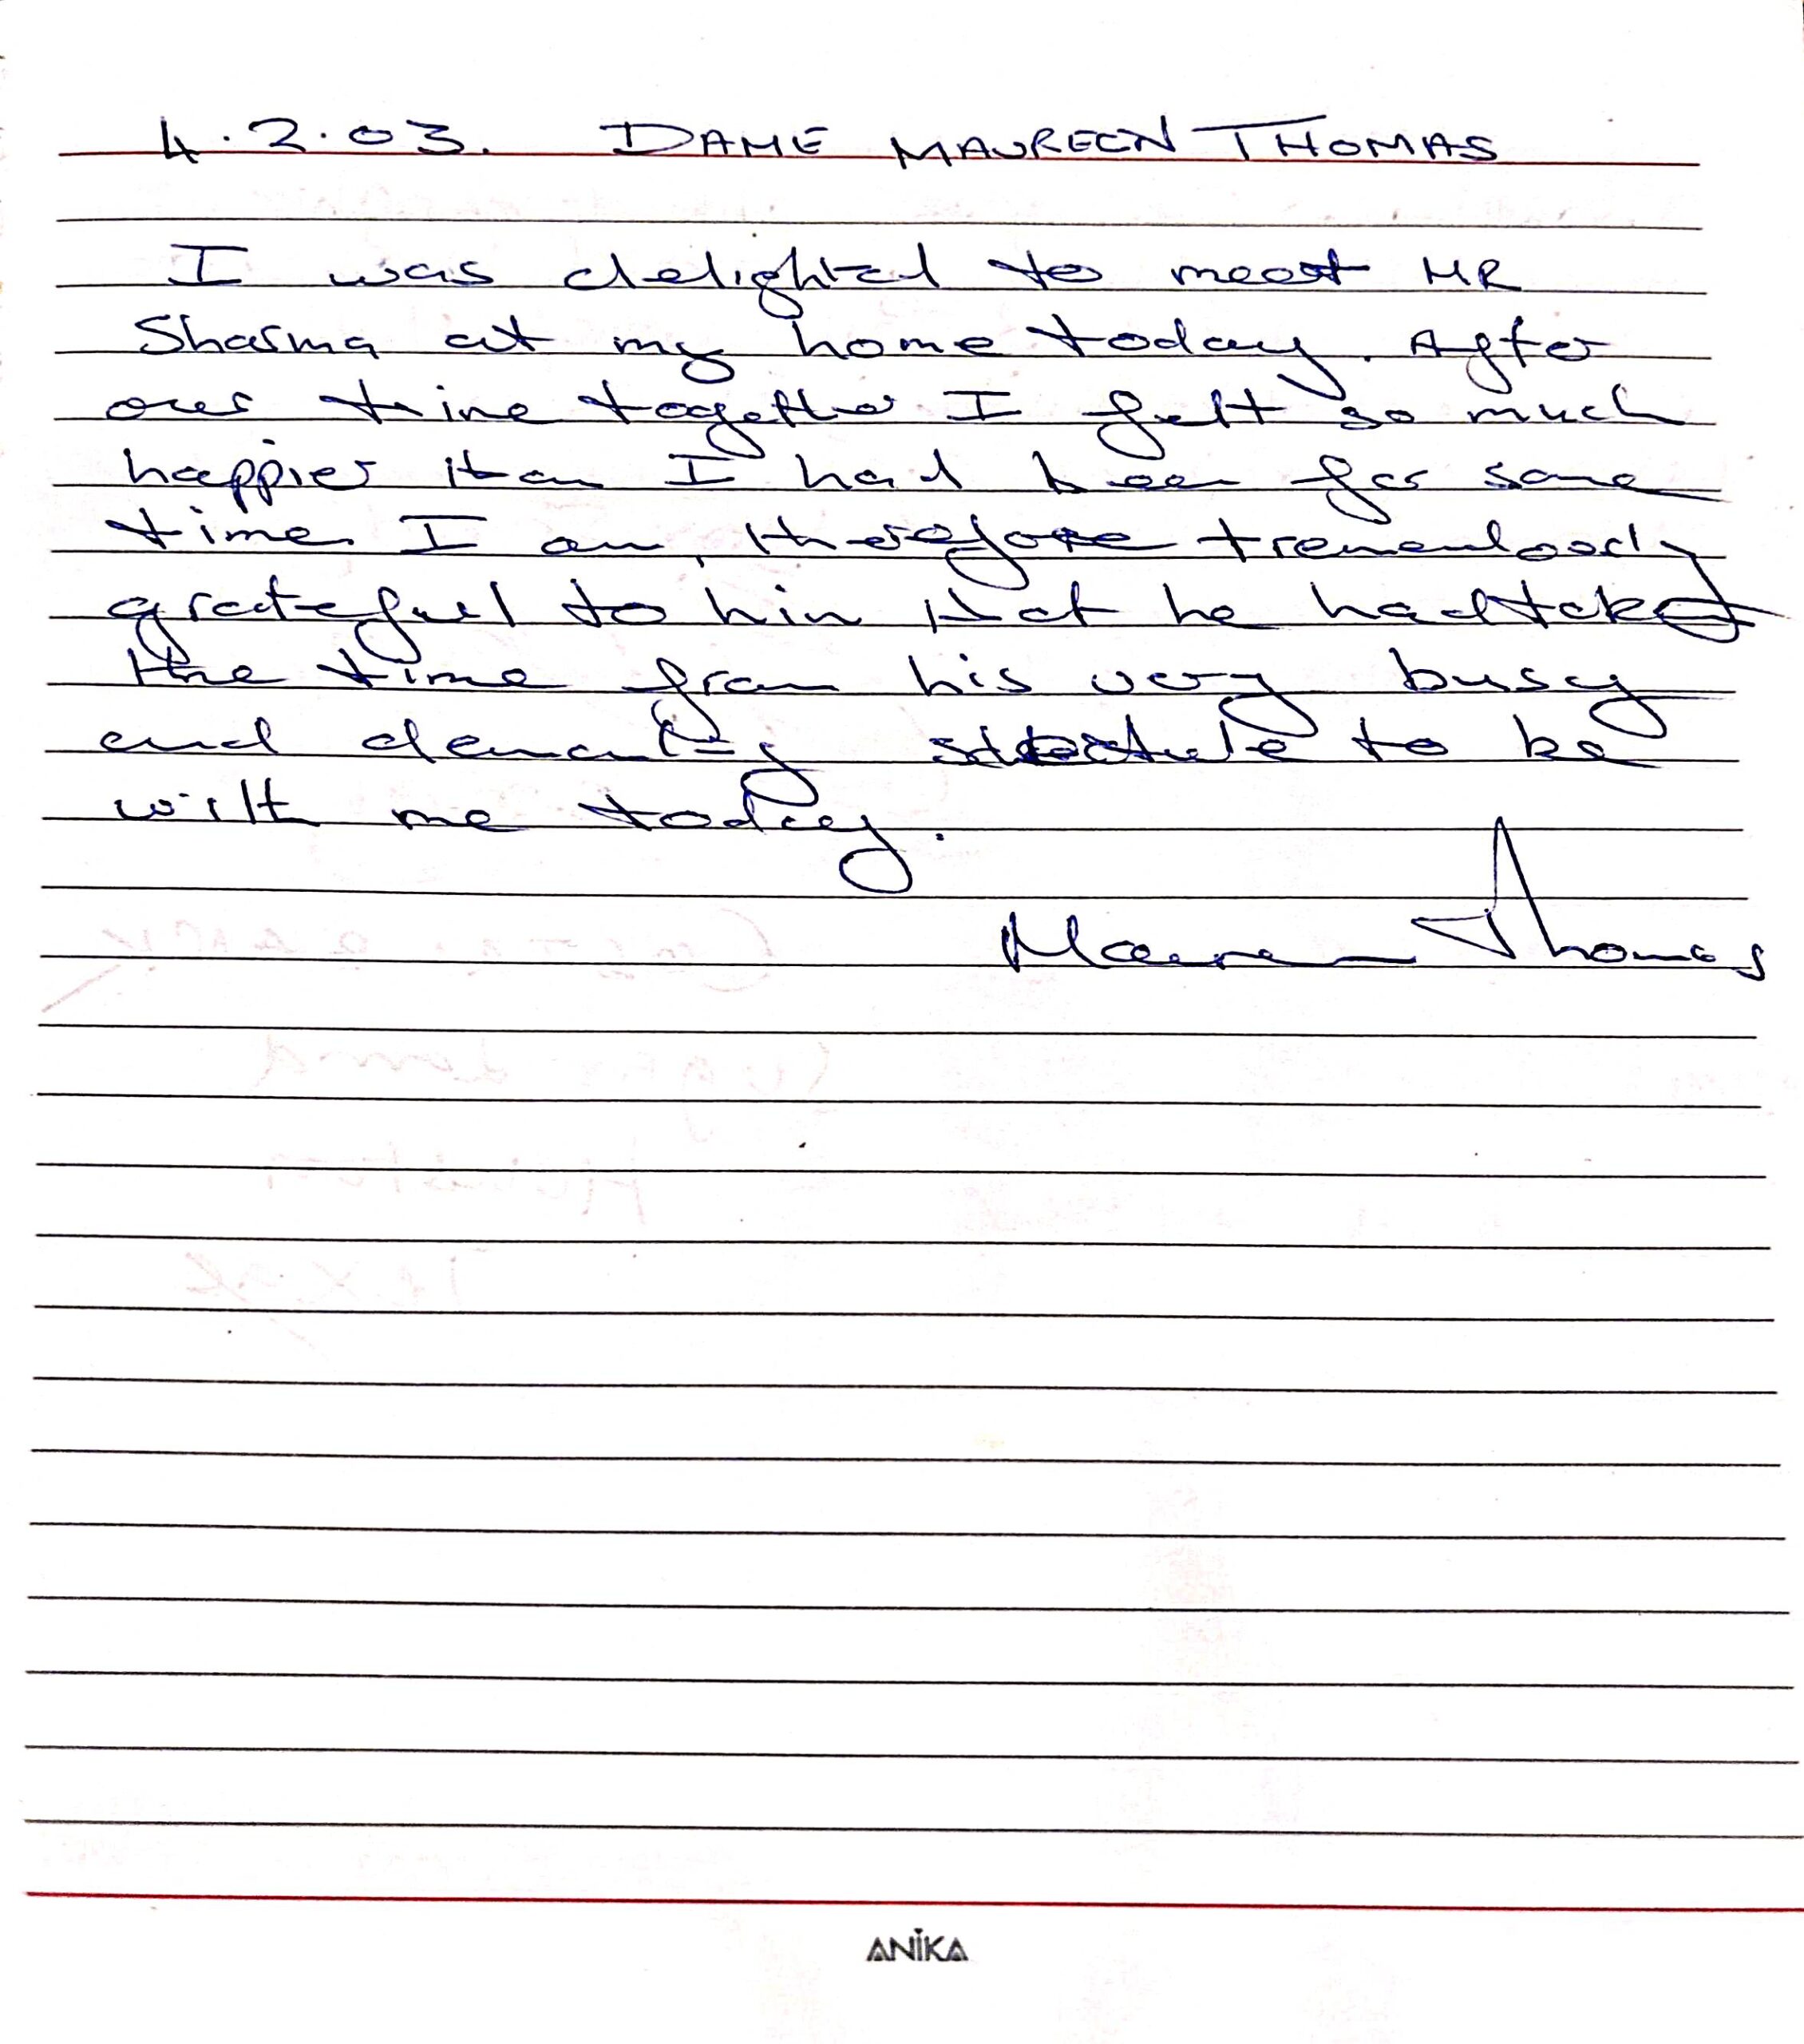 4.2.03. DAME MAUREEN THOMAS
I was delighted to meet MR
Sharma at my home today. After
our time together I felt so much
happier than I had been for some
time. I am, therefore tremendously
grateful to him that he had taken
the time from his very busy
and demanding schedule to be
with me today.
Maureen Thomas
ANIKA